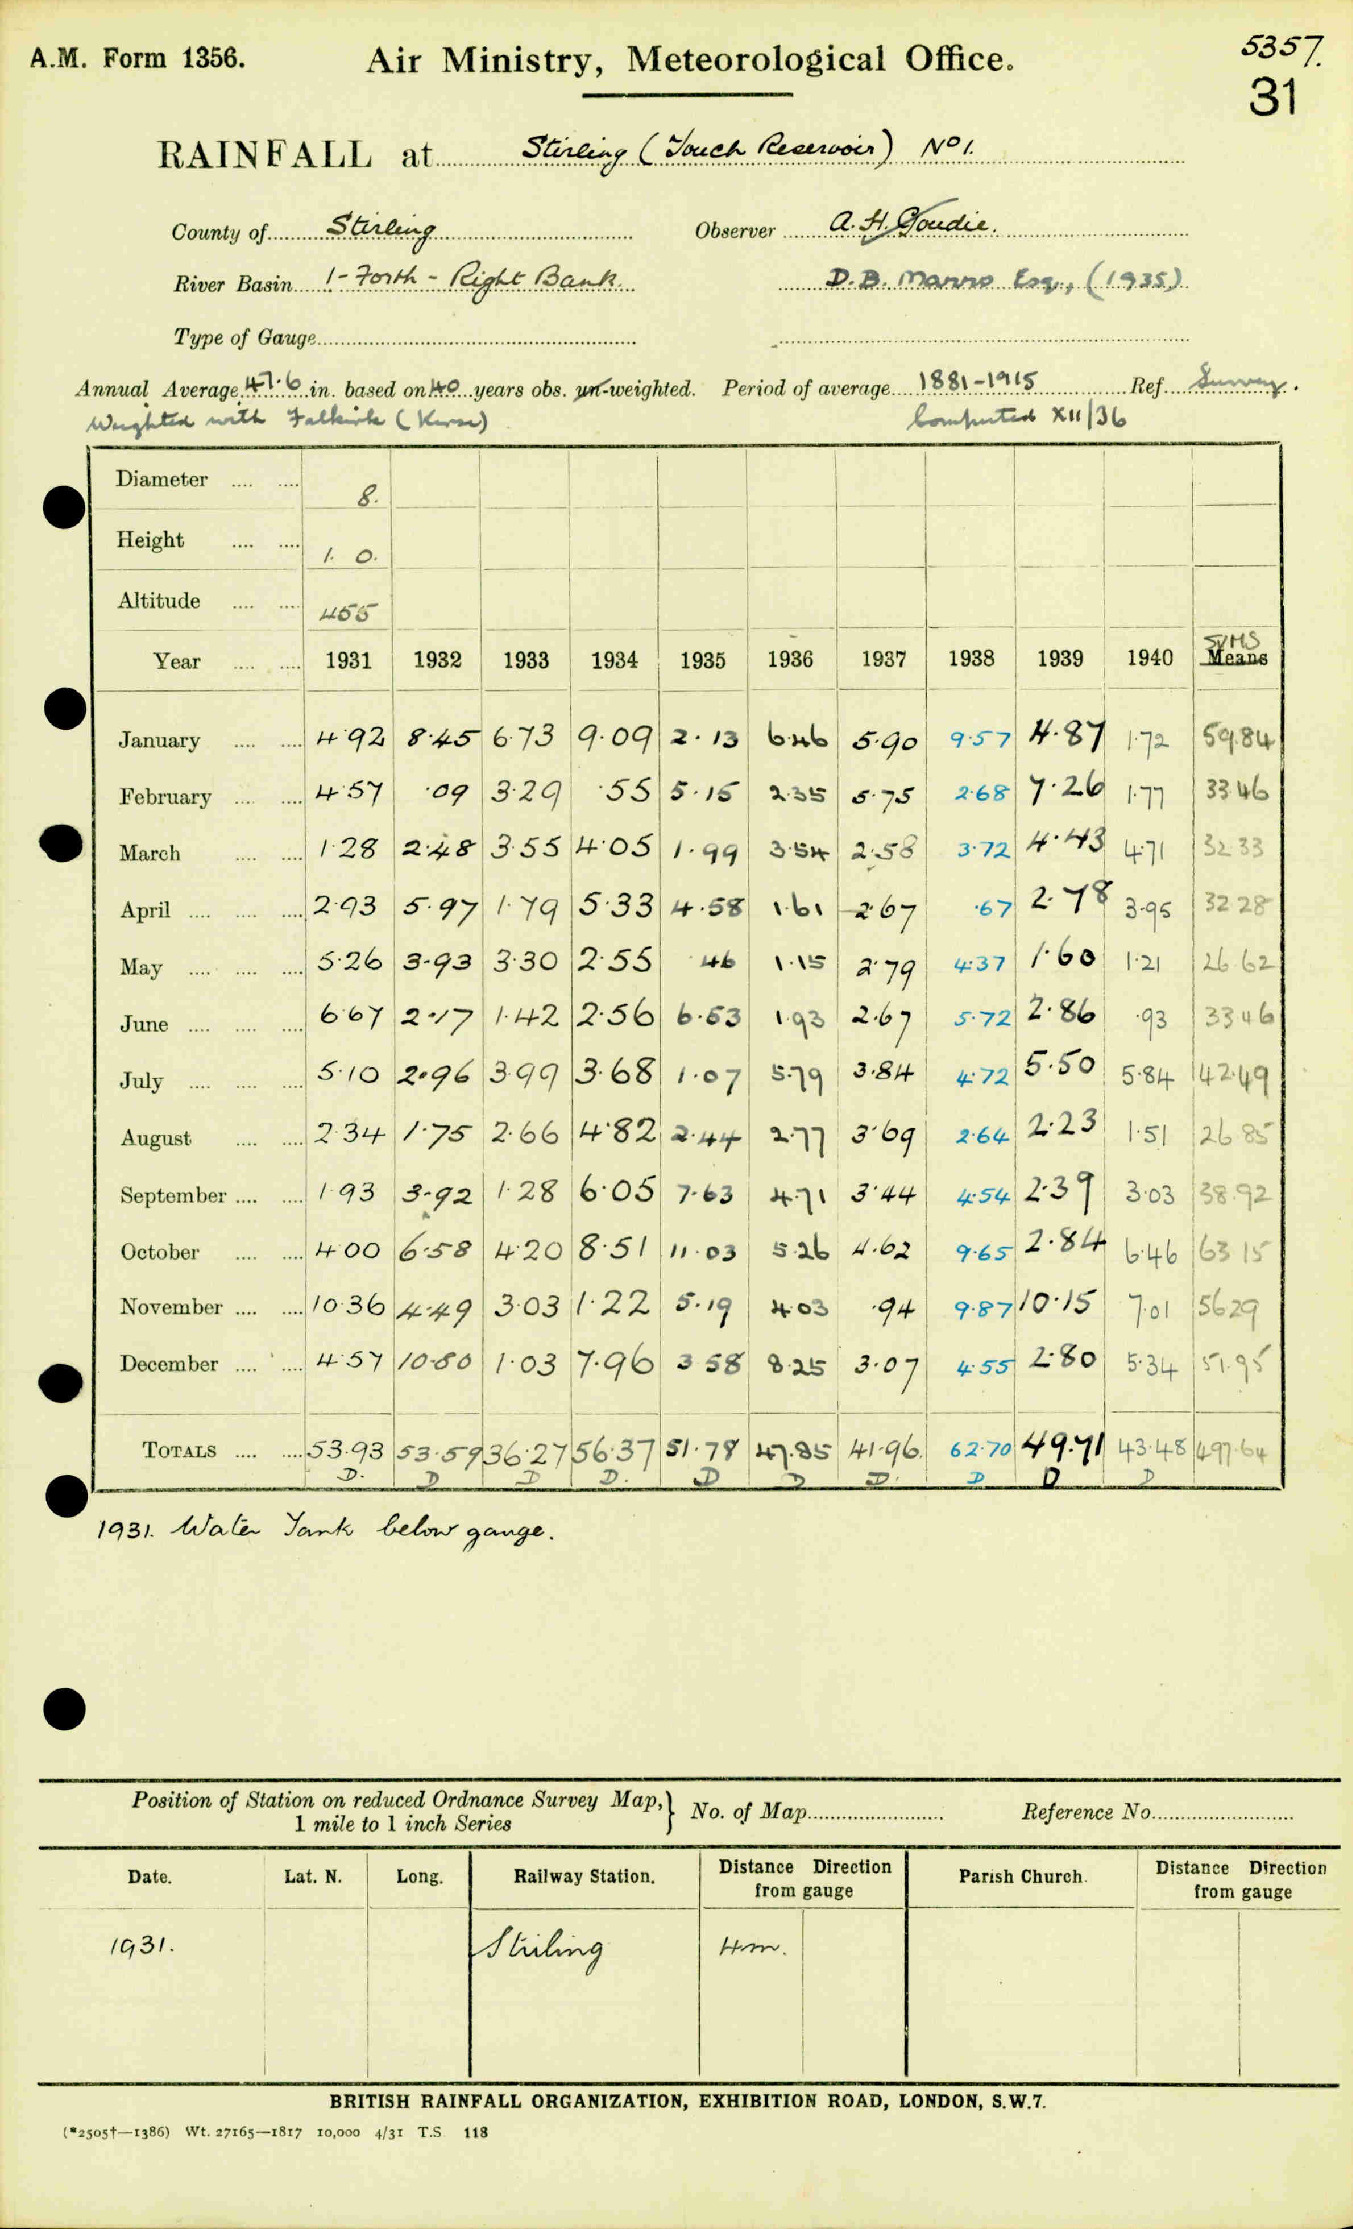 A.M. Form 1356.
Air Ministry, Meteorological Office.
5357.
31
RAINFALL at Stirling (Touch Reservoir) No 1.
County of Stirling Observer A. H. Goudie.
River Basin 1 - Forth - Right Bank. D. B. Manro Esq., (1935)
Type of Gauge
Annual Average 47.6 in. based on 40 years obs. un-weighted. Period of average 1881-1915 Ref. Survey.
Weighted with Falkirk (Kerse) Computed XII/36
Diameter 8.
Height 1. 0.
Altitude 455
Year 1931 1932 1933 1934 1935 1936 1937 1938 1939 1940 SUMS Means
January 4.92 8.45 6.73 9.09 2.13 6.46 5.90 9.57 4.87 1.72 59.84
February 4.57 .09 3.29 .55 5.15 2.35 5.75 2.68 7.26 1.77 33 46
March 1.28 2.48 3.55 4.05 1.99 3.54 2.58 3.72 4.43 4.71 32 33
April 2.93 5.97 1.79 5.33 4.58 1.61 2.67 .67 2.78 3.95 32 28
May 5.26 3.93 3.30 2.55 .46 1.15 2.79 4.37 1.60 1.21 26 62
June 6.67 2.17 1.42 2.56 6.53 1.93 2.67 5.72 2.86 .93 33 46
July 5.10 2.96 3.99 3.68 1.07 5.79 3.84 4.72 5.50 5.84 42.49
August 2.34 1.75 2.66 4.82 2.44 2.77 3.69 2.64 2.23 1.51 26 85
September 1.93 3.92 1.28 6.05 7.63 4.71 3.44 4.54 2.39 3.03 38.92
October 4.00 6.58 4.20 8.51 11.03 5.26 4.62 9.65 2.84 6.46 63 15
November 10.36 4.49 3.03 1.22 5.19 4.03 .94 9.87 10.15 7.01 56 29
December 4.57 10.80 1.03 7.96 3 58 8.25 3.07 4.55 2.80 5.34 51.95
TOTALS 53.93 53.59 36.27 56.37 51.78 47.85 41.96 62.70 49.71 43.48 497.64
D. D D D. D D D. D D D
1931. Water Tank below gauge.
Position of Station on reduced Ordnance Survey Map, 1 mile to 1 inch Series } No. of Map Reference No.
Date. Lat. N. Long. Railway Station. Distance Direction from gauge Parish Church. Distance Direction from gauge
1931. Stirling 4m.
BRITISH RAINFALL ORGANIZATION, EXHIBITION ROAD, LONDON, S.W.7.
(*2505†—1386) Wt. 27165—1817 10,000 4/31 T.S. 118